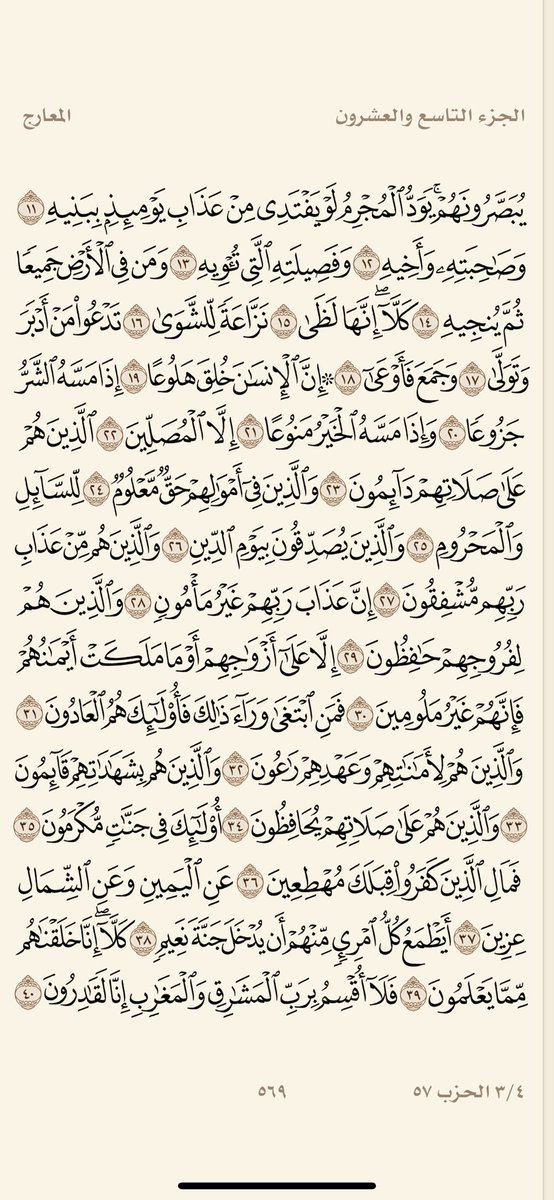 الجزء التاسع والعشرون
المعارج
يُبَصَّرُونَهُمْۚ يَوَدُّ ٱلْمُجْرِمُ لَوْ يَفْتَدِى مِنْ عَذَابِ يَوْمِئِذِۭ بِبَنِيهِ ١١
وَصَٰحِبَتِهِۦ وَأَخِيهِ ١٢ وَفَصِيلَتِهِ ٱلَّتِى تُـْٔوِيهِ ١٣ وَمَن فِى ٱلْأَرْضِ جَمِيعًا
ثُمَّ يُنجِيهِ ١٤ كَلَّآۖ إِنَّهَا لَظَىٰ ١٥ نَزَّاعَةً لِّلشَّوَىٰ ١٦ تَدْعُوا۟ مَنْ أَدْبَرَ
وَتَوَلَّىٰ ١٧ وَجَمَعَ فَأَوْعَىٰٓ ١٨ ۞ إِنَّ ٱلْإِنسَٰنَ خُلِقَ هَلُوعًا ١٩ إِذَا مَسَّهُ ٱلشَّرُّ
جَزُوعًا ٢٠ وَإِذَا مَسَّهُ ٱلْخَيْرُ مَنُوعًا ٢١ إِلَّا ٱلْمُصَلِّينَ ٢٢ ٱلَّذِينَ هُمْ
عَلَىٰ صَلَاتِهِمْ دَآئِمُونَ ٢٣ وَٱلَّذِينَ فِىٓ أَمْوَٰلِهِمْ حَقٌّ مَّعْلُومٌ ٢٤ لِّلسَّآئِلِ
وَٱلْمَحْرُومِ ٢٥ وَٱلَّذِينَ يُصَدِّقُونَ بِيَوْمِ ٱلدِّينِ ٢٦ وَٱلَّذِينَ هُم مِّنْ عَذَابِ
رَبِّهِم مُّشْفِقُونَ ٢٧ إِنَّ عَذَابَ رَبِّهِمْ غَيْرُ مَأْمُونٍ ٢٨ وَٱلَّذِينَ هُمْ
لِفُرُوجِهِمْ حَٰفِظُونَ ٢٩ إِلَّا عَلَىٰٓ أَزْوَٰجِهِمْ أَوْ مَا مَلَكَتْ أَيْمَٰنُهُمْ
فَإِنَّهُمْ غَيْرُ مَلُومِينَ ٣٠ فَمَنِ ٱبْتَغَىٰ وَرَآءَ ذَٰلِكَ فَأُو۟لَٰٓئِكَ هُمُ ٱلْعَادُونَ ٣١
وَٱلَّذِينَ هُمْ لِأَمَٰنَٰتِهِمْ وَعَهْدِهِمْ رَٰعُونَ ٣٢ وَٱلَّذِينَ هُم بِشَهَٰدَٰتِهِمْ قَآئِمُونَ
٣٣ وَٱلَّذِينَ هُمْ عَلَىٰ صَلَاتِهِمْ يُحَافِظُونَ ٣٤ أُو۟لَٰٓئِكَ فِى جَنَّٰتٍ مُّكْرَمُونَ ٣٥
فَمَالِ ٱلَّذِينَ كَفَرُوا۟ قِبَلَكَ مُهْطِعِينَ ٣٦ عَنِ ٱلْيَمِينِ وَعَنِ ٱلشِّمَالِ
عِزِينَ ٣٧ أَيَطْمَعُ كُلُّ ٱمْرِئٍ مِّنْهُمْ أَن يُدْخَلَ جَنَّةَ نَعِيمٍ ٣٨ كَلَّآۖ إِنَّا خَلَقْنَٰهُم
مِّمَّا يَعْلَمُونَ ٣٩ فَلَآ أُقْسِمُ بِرَبِّ ٱلْمَشَٰرِقِ وَٱلْمَغَٰرِبِ إِنَّا لَقَٰدِرُونَ ٤٠
٣/٤ الحزب ٥٧
٥٦٩